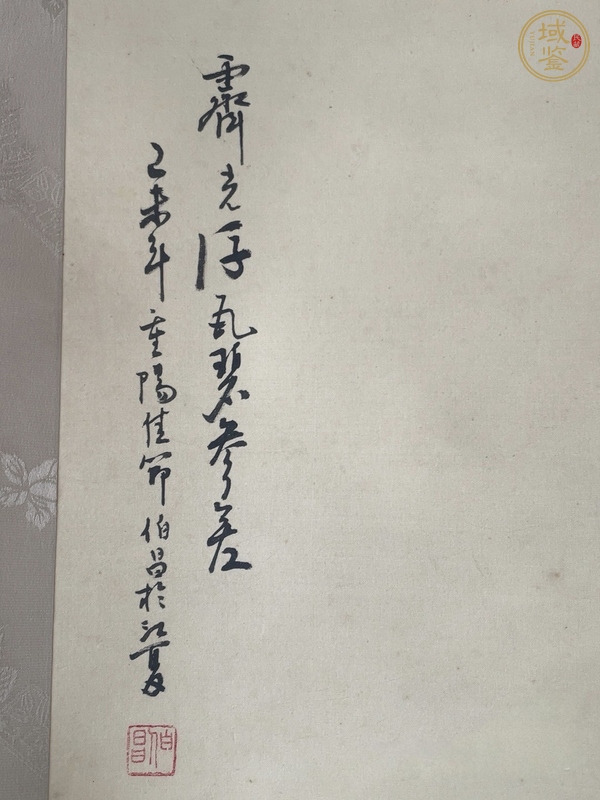 霽光浮瓦碧參差
己未年重陽佳節伯昌於江夏
伯昌
域鉴